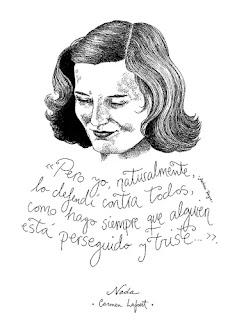 «Pero yo, naturalmente,
lo defendí contra todos,
como hago siempre que alguien
está perseguido y triste...».
Nada
· Carmen Laforet ·